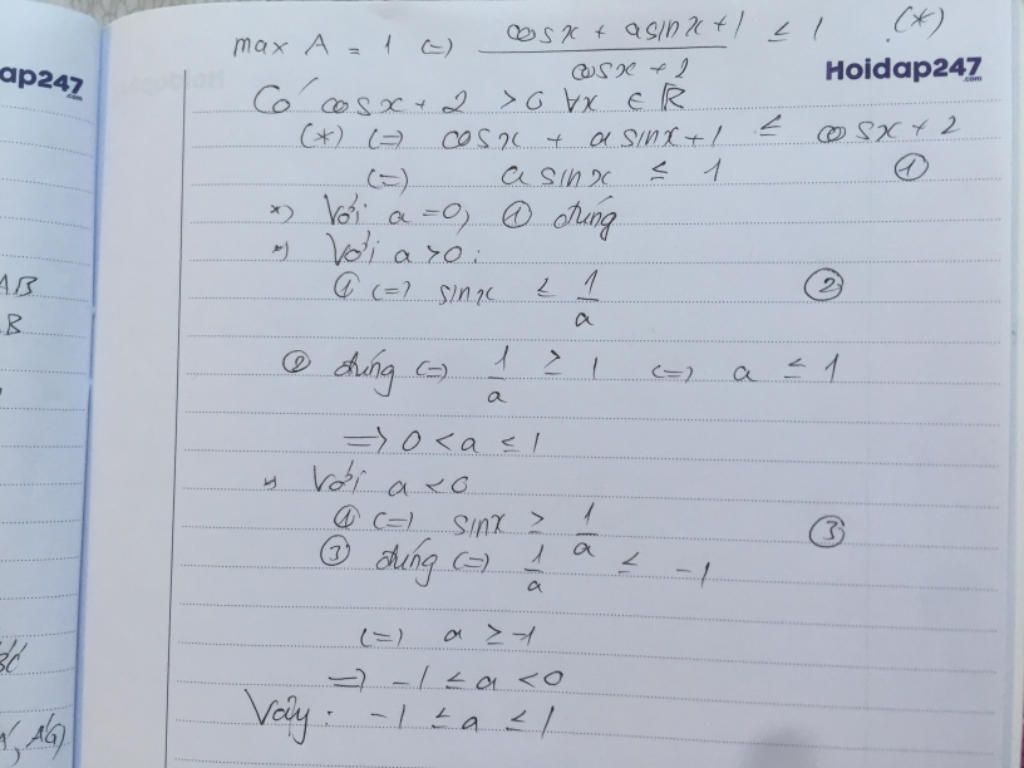 max A = 1 (=) (cosx + asinx + 1)/(cosx + 2) ≤ 1 (*)
ap247
.com
Hoidap247
.com
Có cosx + 2 > 0 ∀x ∈ ℝ
(*) (=) cosx + asinx + 1 ≤ cosx + 2
(=) a sinx ≤ 1 ①
*) Với a = 0, ① đúng
*) Với a > 0 :
① (=) sinx ≤ 1/a ②
AB
B
② đúng (=) 1/a ≥ 1 (=) a ≤ 1
=> 0 < a ≤ 1
*) Với a < 0
① (=) sinx ≥ 1/a ③
③ đúng (=) 1/a ≤ -1
(=) a ≥ -1
=> -1 ≤ a < 0
Vậy : -1 ≤ a ≤ 1
, A'G)